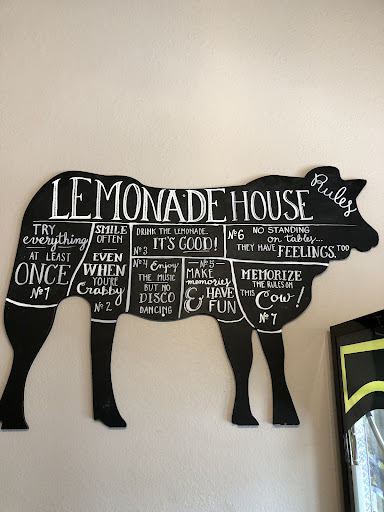 LEMONADE HOUSE
Rules
TRY
everything
AT LEAST
ONCE
Nº1
SMILE
OFTEN
EVEN
WHEN
YOU'RE
Crabby
Nº 2
DRINK THE LEMONADE.
IT'S GOOD!
Nº3
Nº4 Enjoy
THE MUSIC
BUT NO
DISCO
DANCING
Nº5
MAKE
memories
& HAVE
FUN
Nº6 NO STANDING
on tables...
THEY HAVE FEELINGS, TOO
MEMORIZE
THE RULES ON
THIS Cow!
Nº 7